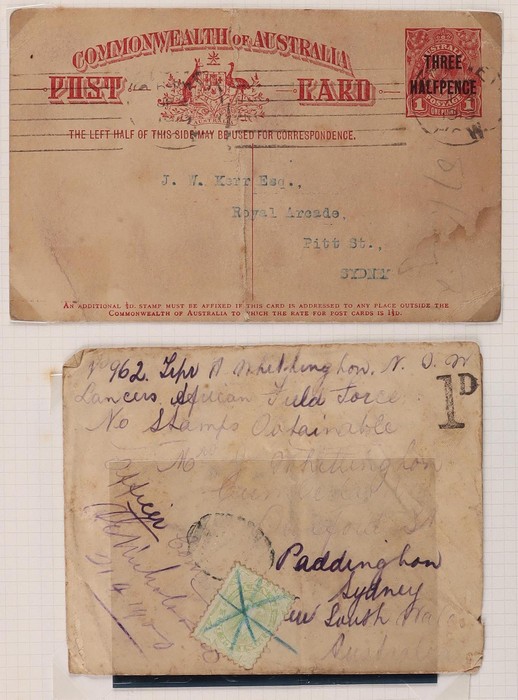 COMMONWEALTH OF AUSTRALIA
POST CARD
THREE
HALFPENCE
1 1
ONE PENNY
THE LEFT HALF OF THIS SIDE MAY BE USED FOR CORRESPONDENCE.
J. W. Kerr Esq.,
Royal Arcade,
Pitt St.,
SYDNEY
AN ADDITIONAL ½D. STAMP MUST BE AFFIXED IF THIS CARD IS ADDRESSED TO ANY PLACE OUTSIDE THE
COMMONWEALTH OF AUSTRALIA TO WHICH THE RATE FOR POST CARDS IS 1½D.
No 962. Tpr A Whittinghon. N. S. W
Lancers African Field Force
No Stamps Obtainable
1D
Mrs Whittinghon
Paddinghon
Sydney
New South Wales
Australia
Officer